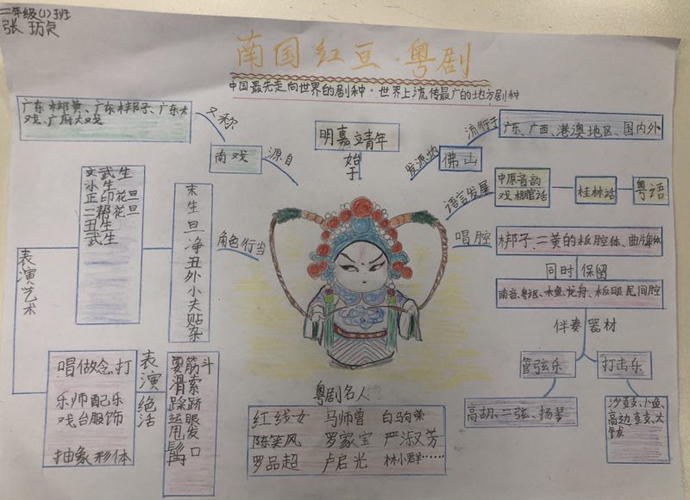 二年级(1)班
南国红豆·粤剧
中国最先走向世界的剧种·世界上流传最广的地方剧种
广东大
戏、广府大戏
又称
南戏
源自
明嘉靖年
始于
发源地
佛山
流行于
广东、广西、港澳地区、国内外
语言发展
中原音韵
戏棚官话
桂林话
粤语
唱腔
梆子、二黄的板腔体、曲牌体
同时保留
南音、粤讴、木鱼、龙舟、板眼民间腔
伴奏器材
管弦乐
打击乐
高胡、二弦、扬琴
角色行当
末生旦净丑外小夫贴杂
文武生
小生
正印花旦
二帮花旦
丑生
武生
表演艺术
唱做念打
乐师配乐
戏台服饰
抽象形体
表演绝活
耍筋斗
滑索
踩跷
运眼
甩发
粤剧名人
红线女 马师曾 白驹荣
陈笑风 罗家宝 严淑芳
罗品超 卢启光